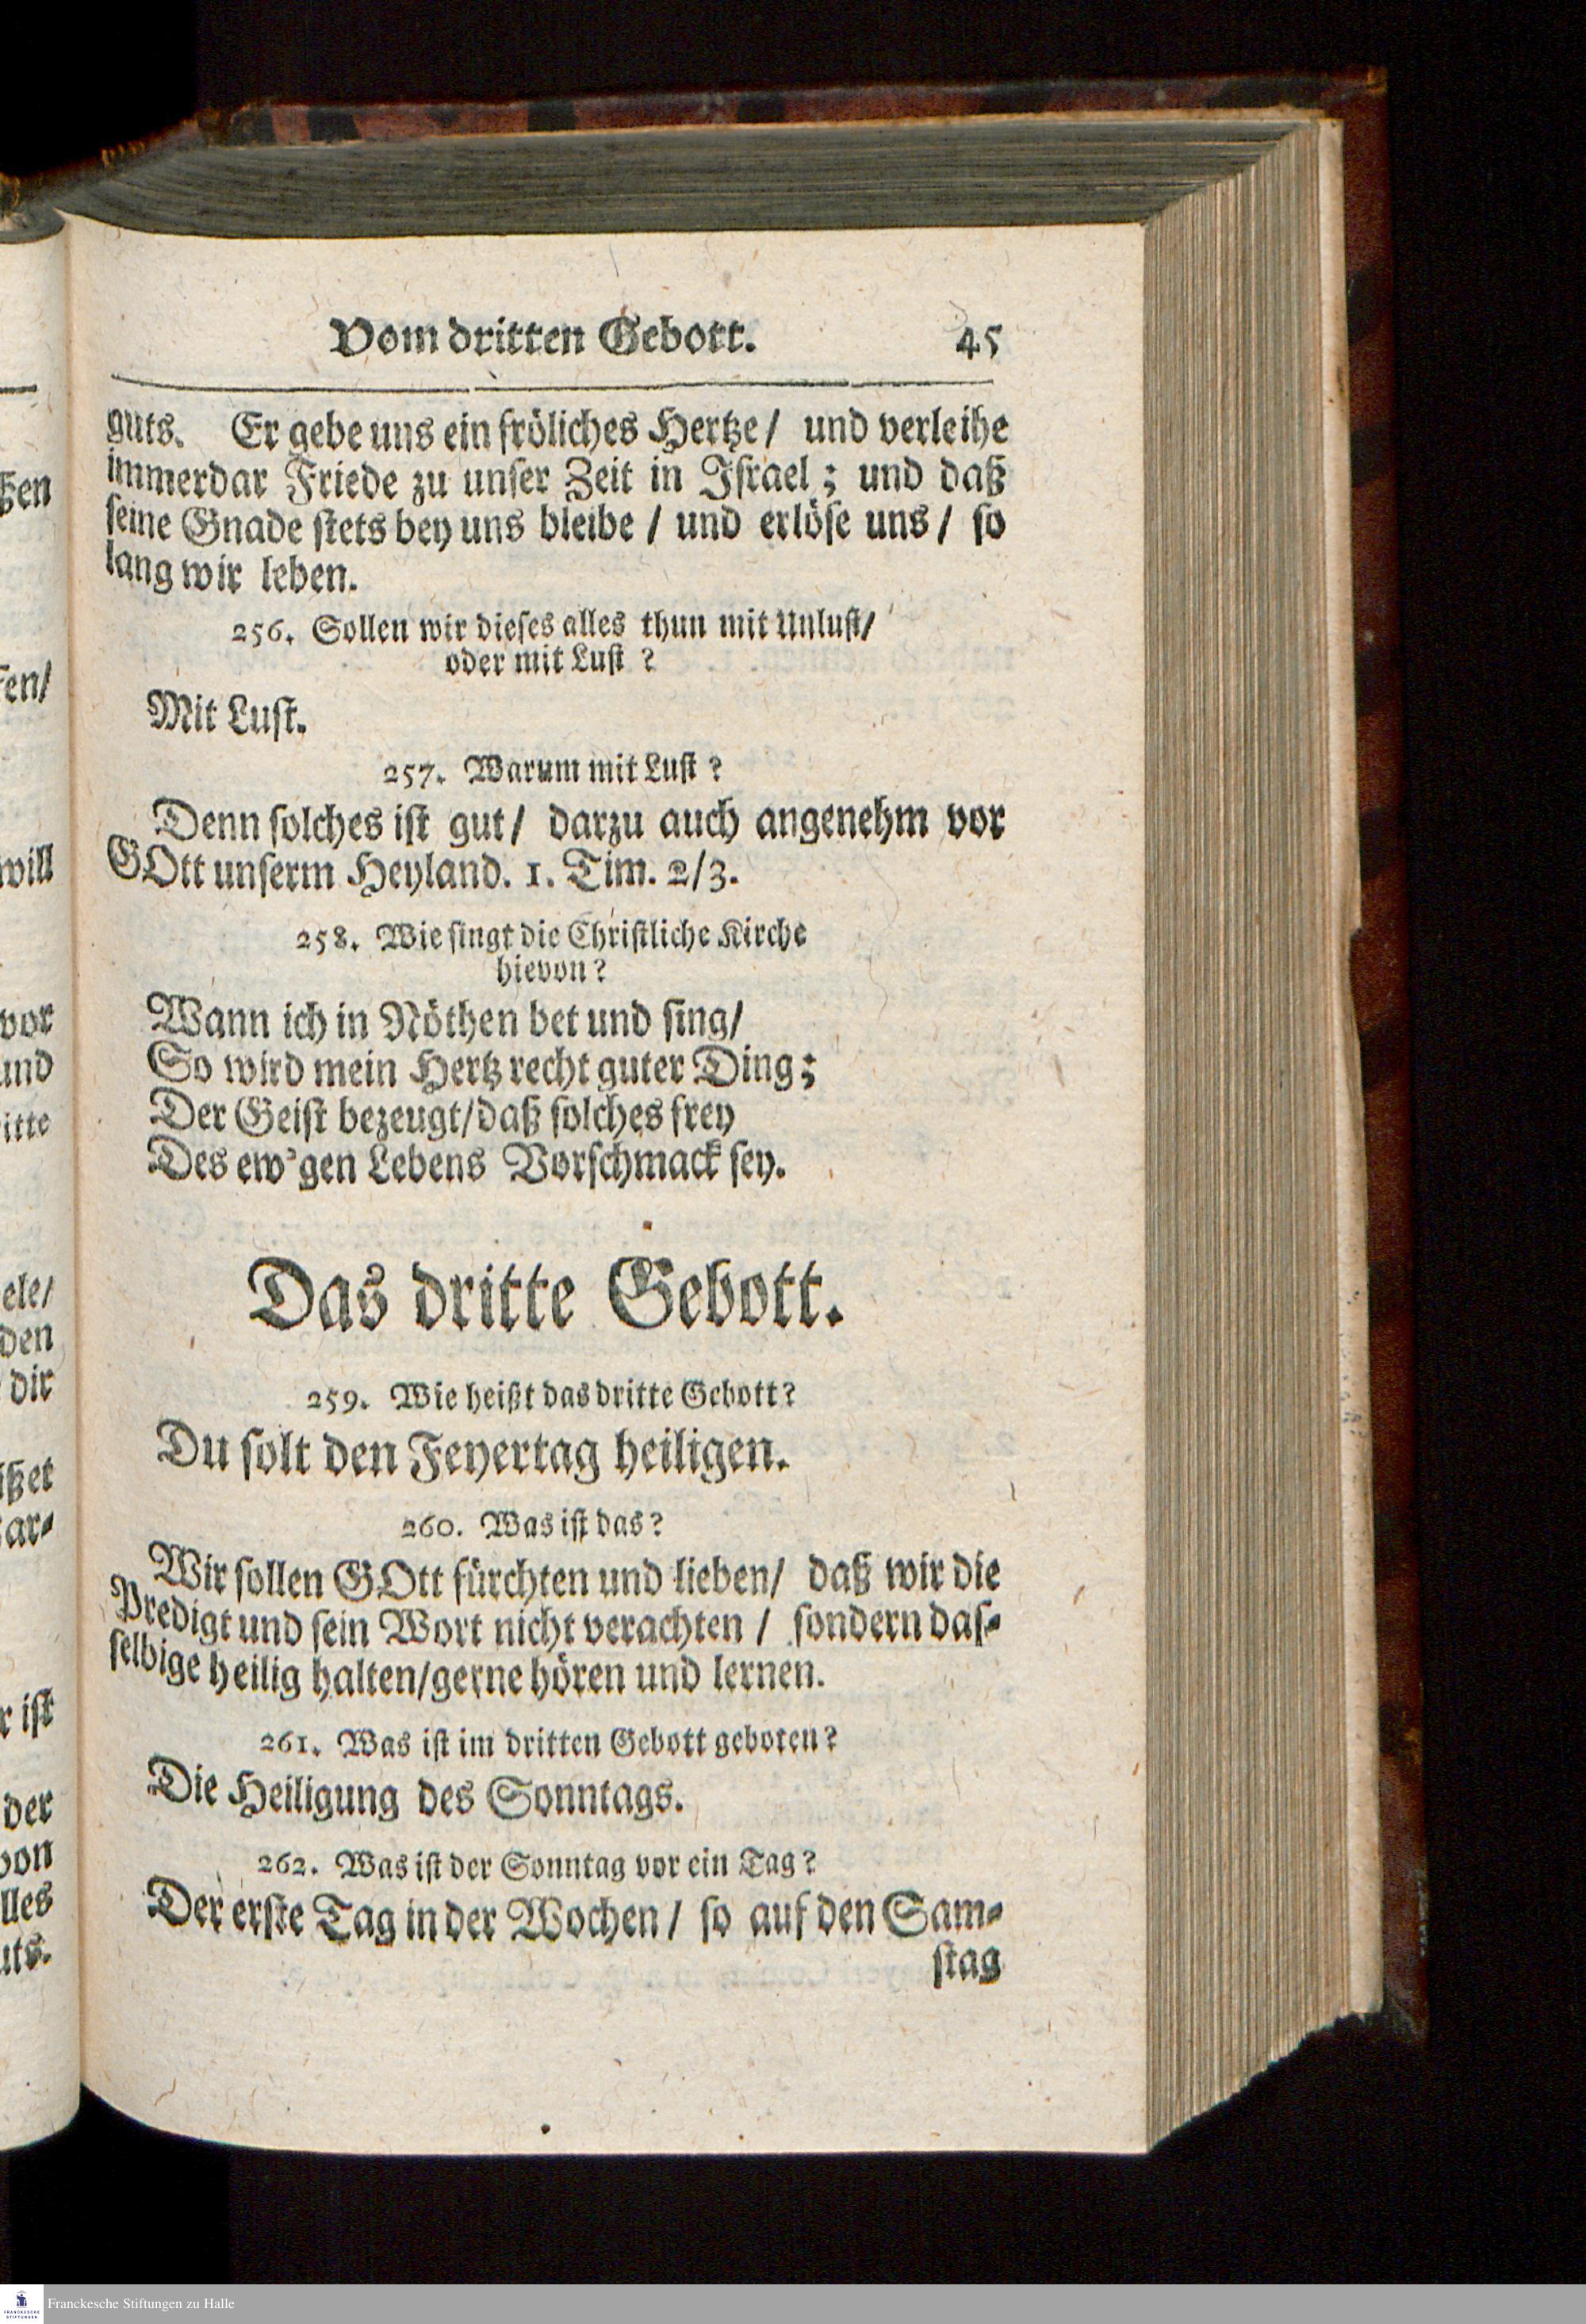 Vom dritten Gebott. 45
guts. Er gebe uns ein fröliches Hertze/ und verleihe
immerdar Friede zu unser Zeit in Israel; und daß
seine Gnade stets bey uns bleibe / und erlöse uns/ so
lang wir leben.
256. Sollen wir dieses alles thun mit Unlust/
oder mit Lust ?
Mit Lust.
257. Warum mit Lust ?
Denn solches ist gut/ darzu auch angenehm vor
GOtt unserm Heyland. 1. Tim. 2/3.
258. Wie singt die Christliche Kirche
hievon?
Wann ich in Nöthen bet und sing/
So wird mein Hertz recht guter Ding;
Der Geist bezeugt/daß solches frey
Des ew'gen Lebens Vorschmack sey.
Das dritte Gebott.
259. Wie heißt das dritte Gebott?
Du solt den Feyertag heiligen.
260. Was ist das?
Wir sollen GOtt fürchten und lieben/ daß wir die
Predigt und sein Wort nicht verachten / sondern das-
selbige heilig halten/gerne hören und lernen.
261. Was ist im dritten Gebott geboten?
Die Heiligung des Sonntags.
262. Was ist der Sonntag vor ein Tag?
Der erste Tag in der Wochen/ so auf den Sam-
stag
Franckesche Stiftungen zu Halle